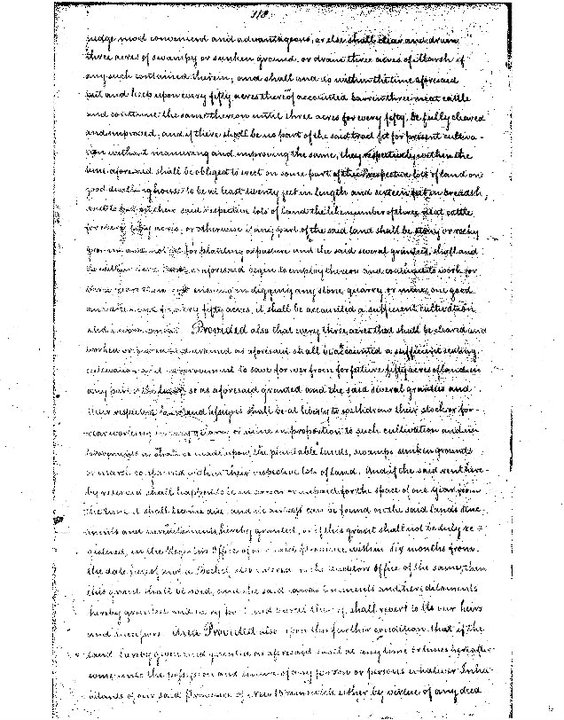 118
judge most convenient and advantageous, or else shall clear and drain
three acres of swampy or sunken ground, or drain three acres of Marsh if
any such contained therein, and shall and do within the time aforesaid
put and keep upon every fifty acres thereof accounted barren three neat cattle
and continue the same thereon until three acres for every fifty, be fully cleared
and improved, and if there shall be no part of the said tract fit for present cultiva-
tion without manuring and improving the same, they respectively within the
time aforesaid shall be obliged to erect on some part of their respective lots of land one
good dwelling house to be at least twenty feet in length and sixteen feet in breadth,
and to put on their said respective lots of land the like number of three neat cattle
for every fifty acres, or otherwise if any part of the said land shall be stony or rocky
ground and not fit for planting or pasture and the said several grantees, shall and
do within three years as aforesaid begin to employ thereon and continue to work for
three years then next ensuing in digging any stone quarry or mine one good
and able hand for every fifty acres, it shall be accounted a sufficient cultivation
and improvement. Provided also that every three acres that shall be cleared and
worked or cleared and drained as aforesaid shall be accounted a sufficient seating,
cultivation and improvement to save for ever from forfeiture fifty acres of land in
any part of the tract so as aforesaid granted and the said several grantees and
their respective heirs and assigns shall be at liberty to withdraw their stock or for-
bear working in any quarry or mine in proportion to such cultivation and im-
provements as shall be made upon the plantable lands, swamps sunken grounds
or marsh contained within their respective lots of land. And if the said rent here-
by reserved shall happen to be in arrear or unpaid for the space of one year from
the time it shall become due, and no distress can be found on the said lands tene-
ments and hereditaments hereby granted, or if this grant shall not be duly re-
gistered, in the Registers Office of our said province within six months from
the date hereof and a Docket also entered in the Auditors Office of the same, then
this grant shall be void, and the said lands tenements and hereditaments
hereby granted and every part and parcel thereof, shall revert to Us our heirs
and successors. And Provided also upon this further condition, that if the
land hereby given and granted as aforesaid shall at any time or times hereafter
come into the possession and tenure of any person or persons whatever Inhab-
itants of our said Province of New Brunswick either by virtue of any deed